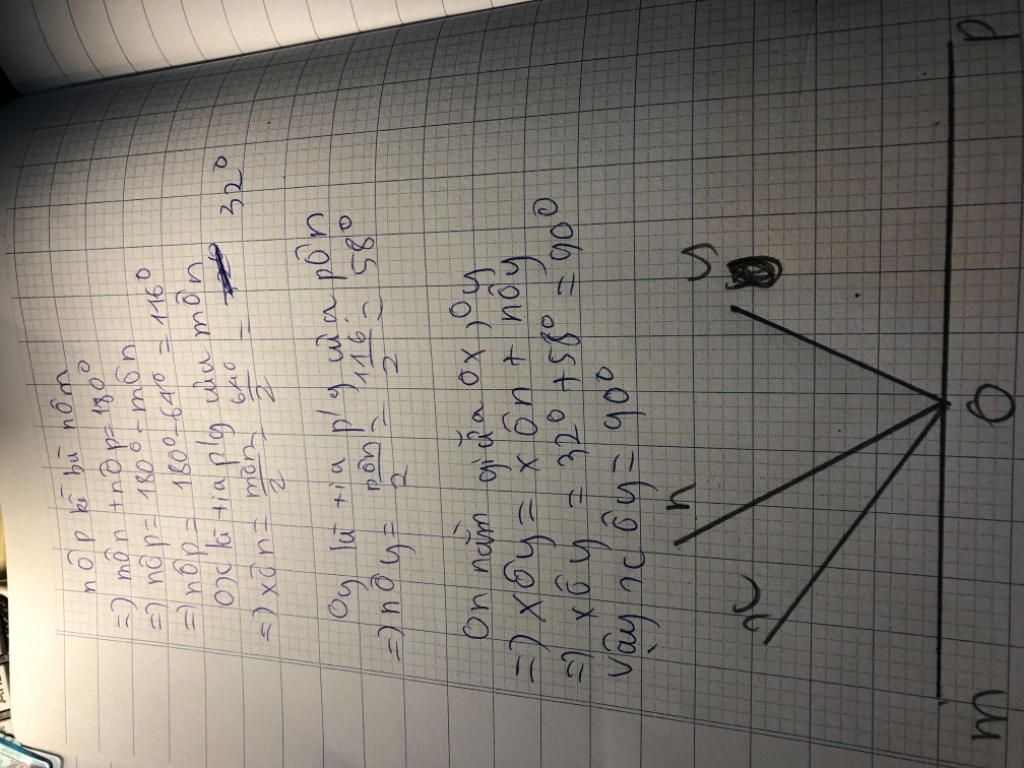 nôp kề bù nôm
=) môn + nôp = 180°
=) nôp = 180° - môn
=) nôp = 180° - 64° = 116°
Ox là tia p/g của môn
=) xôn = môn/2 = 64°/2 = 32°
Oy là tia p/g của pôn
=) nôy = pôn/2 = 116/2 = 58°
On nằm giữa Ox, Oy
=) xôy = xôn + nôy
=) xôy = 32° + 58° = 90°
vậy xôy = 90°
x n y
m O p